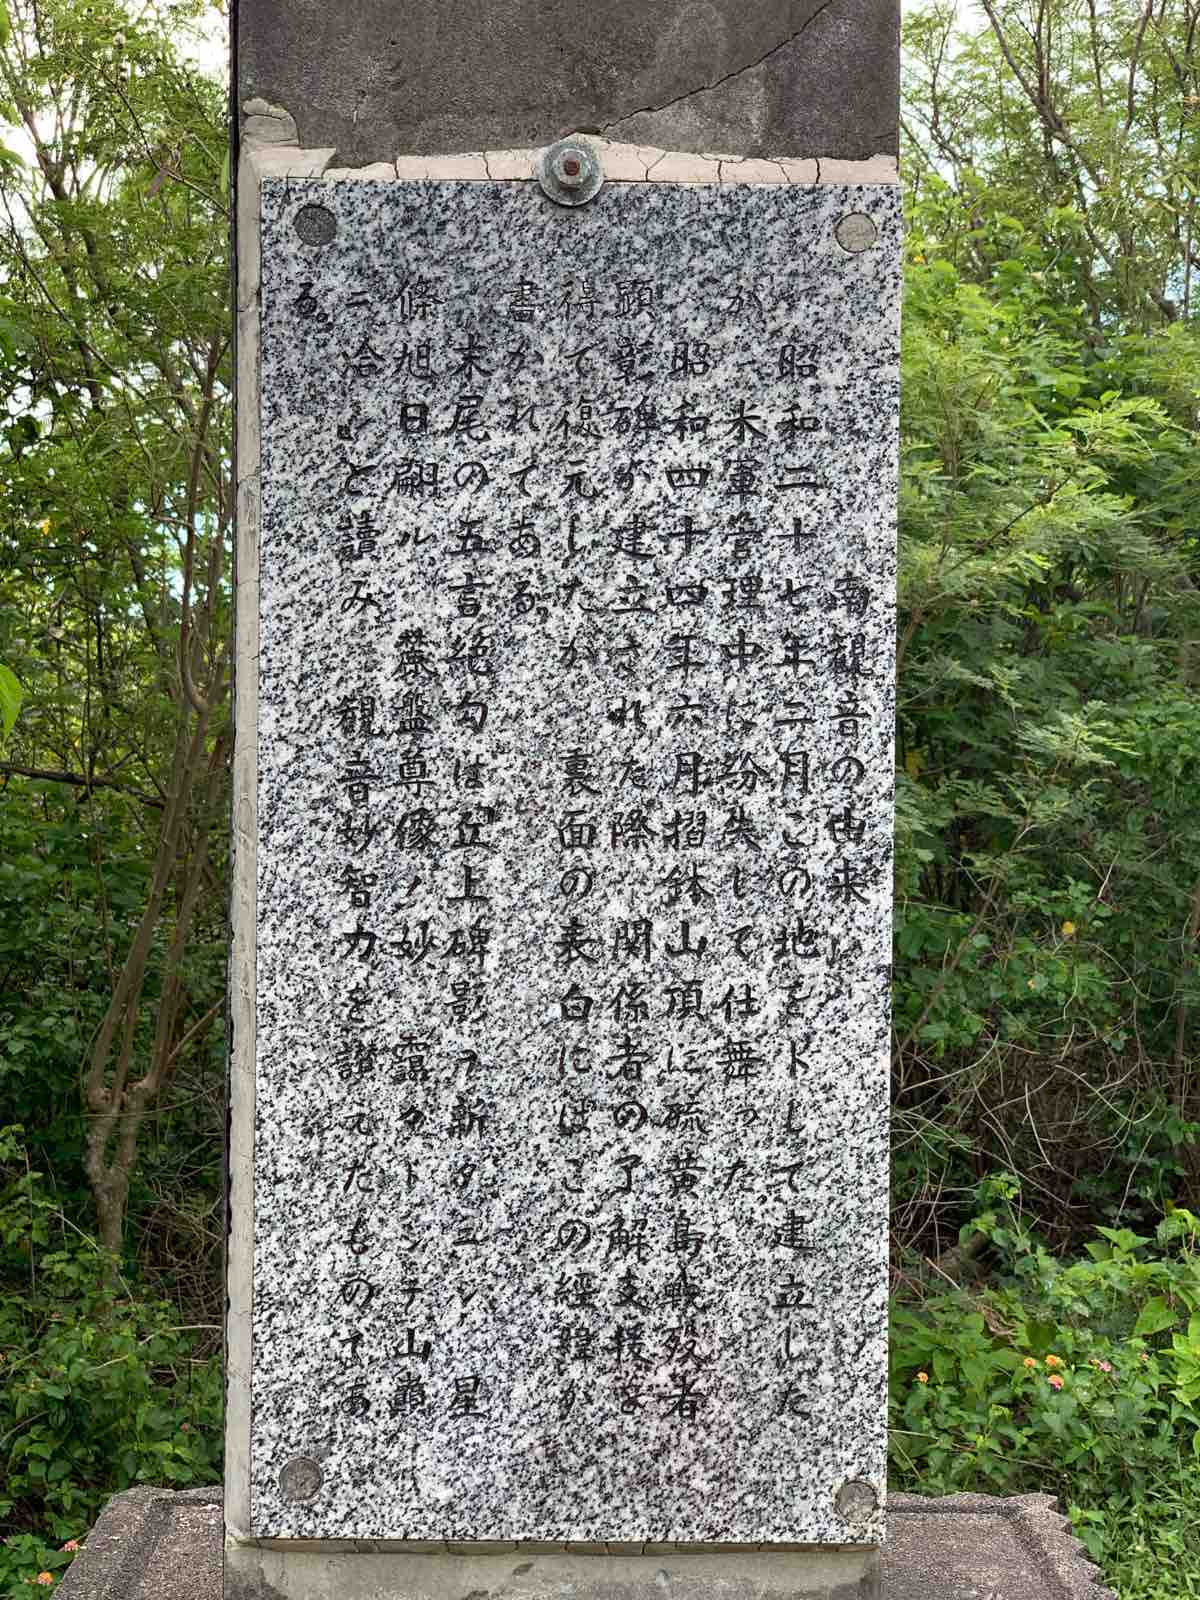 南観音の由来
昭和二十七年二月この地を卜して建立した
が、米軍管理中に紛失して仕舞った。
昭和四十四年六月摺鉢山頂に硫黄島戦歿者
顕彰碑が建立された際、関係者の了解支援を
得て復元したが、裏面の表白にはこの経緯が
書かれてある。
末尾の五言絶句は『丘上碑影ヲ新タニシ、星
條旭日翩ル、盤尊像ノ妙、靄タトシテ山
ニ洽シ』と讀み、観音妙智力を讃えたものであ
る。